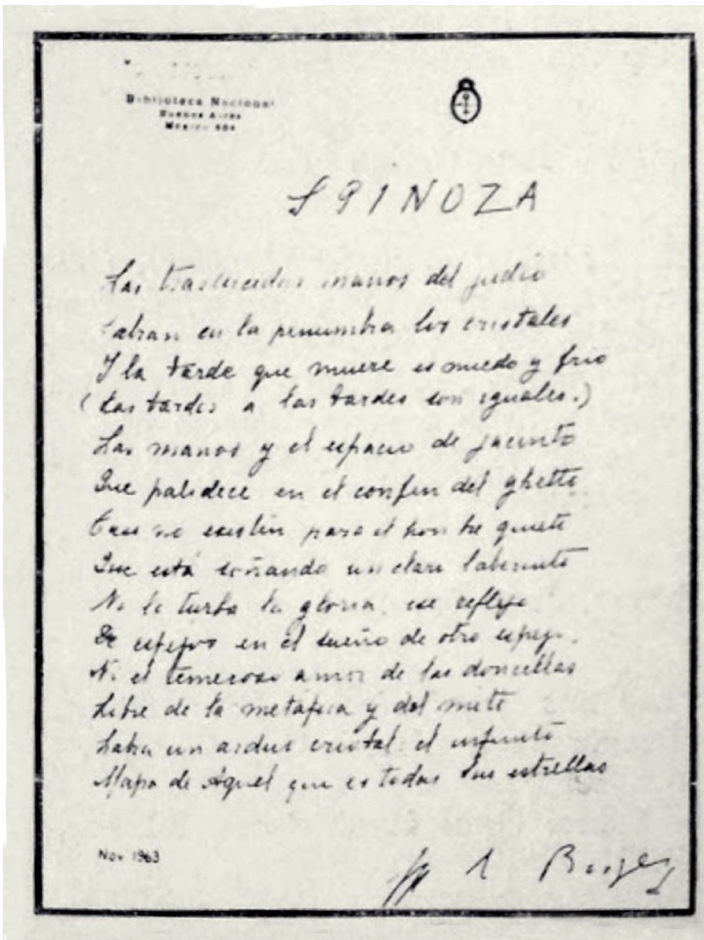 Biblioteca Nacional
Buenos Aires
Mexico 564
SPINOZA
Las traslucidas manos del judío
Labran en la penumbra los cristales
Y la tarde que muere es miedo y frio
(Las tardes a las tardes son iguales.)
Las manos y el espacio de jacinto
Que palidece en el confín del ghetto
Casi no existen para el hombre quieto
Que está soñando un claro laberinto
No lo turba la gloria, ese reflejo
De espejos en el sueño de otro espejo,
Ni el temeroso amor de las doncellas
Libre de la metáfora y del mito
Labra un arduo cristal: el infinito
Mapa de Aquel que es todas Sus estrellas
Nov 1963
J L Borges